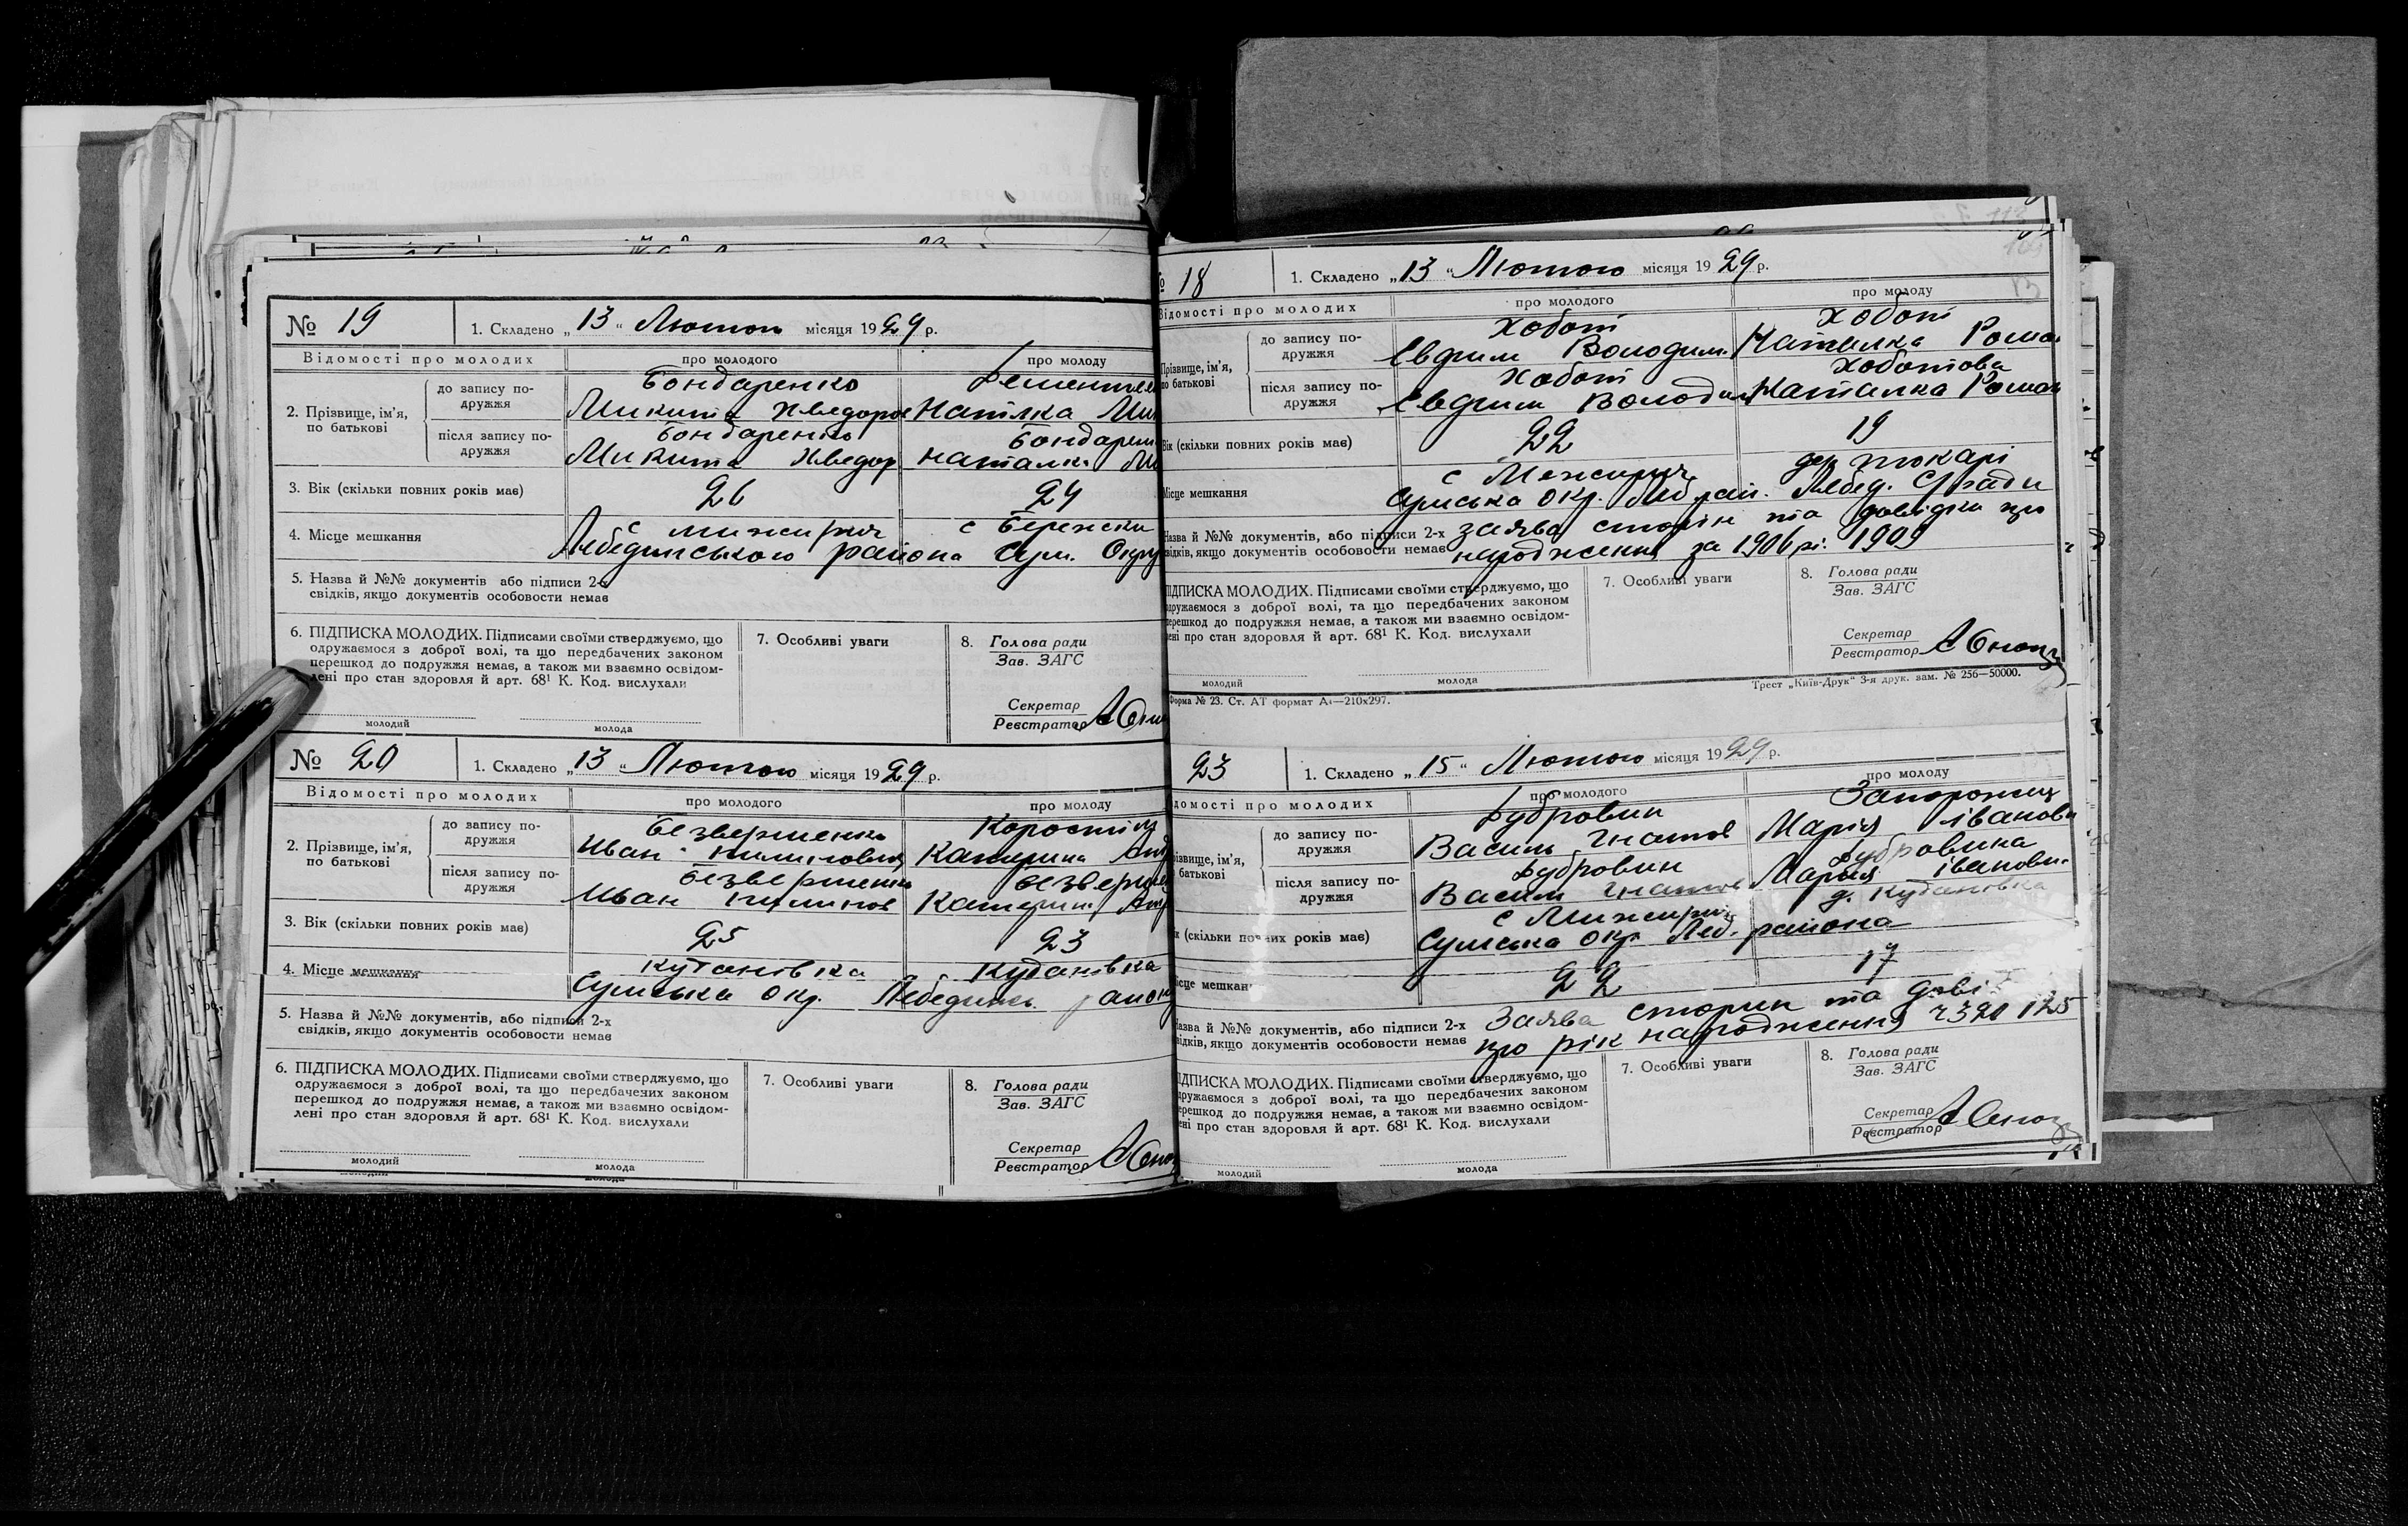 № 19
1. Складено „13“ Лютого місяця 1929 р.
Відомості про молодих
про молодого
про молоду
2. Прізвище, ім'я, по батькові
до запису подружжя
Бондаренко
Микита Хведоров
Натілка Ми
після запису подружжя
Бондаренко
Микита Хведор
Бондарен
Наталка Ми
3. Вік (скільки повних років має)
26
24
4. Місце мешкання
с Мижирич
с Бережки
Лебединського района Сум. Окру
5. Назва й №№ документів або підписи 2-х
свідків, якщо документів особовости немає
6. ПІДПИСКА МОЛОДИХ. Підписами своїми стверджуємо, що
одружаємося з доброї волі, та що передбачених законом
перешкод до подружжя немає, а також ми взаємно освідом-
лені про стан здоровля й арт. 68¹ К. Код. вислухали
молодий
молода
7. Особливі уваги
8. Голова ради
Зав. ЗАГС
Секретар
Реєстратор
№ 20
1. Складено „13“ Лютого місяця 1929 р.
Відомості про молодих
про молодого
про молоду
2. Прізвище, ім'я,
по батькові
до запису по-
дружжя
Безвершенко
Иван
Катерина Анд
після запису по-
дружжя
Безвершенко
Иван
Безверше
Катерин Анд
3. Вік (скільки повних років має)
25
23
4. Місце мешкання
Куданівка
Кудановка
Сумська Окр. Лебединс. район
5. Назва й №№ документів, або підписи 2-х
свідків, якщо документів особовости немає
6. ПІДПИСКА МОЛОДИХ. Підписами своїми стверджуємо, що
одружаємося з доброї волі, та що передбачених законом
перешкод до подружжя немає, а також ми взаємно освідом-
лені про стан здоровля й арт. 68¹ К. Код. вислухали
молодий
молода
7. Особливі уваги
8. Голова ради
Зав. ЗАГС
Секретар
Реєстратор
18
1. Складено „13“ Лютого місяця 1929 р.
Відомості про молодих
про молодого
про молоду
Прізвище, ім'я,
по батькові
до запису по-
дружжя
Хобот
Євдким Володим.
Хобот
Наталка Рома
після запису по-
дружжя
Хобот
Євдким Володим
Хоботова
Наталка Роман
Вік (скільки повних років має)
22
19
Місце мешкання
с Межирич
дер Токарі
Сумська Окр. Леб рай. Лебед. С/ради
Назва й №№ документів, або підписи 2-х
свідків, якщо документів особовости немає
заява сторін та довідки про
народження за 1906 рі. 1909
ПІДПИСКА МОЛОДИХ. Підписами своїми стверджуємо, що
одружаємося з доброї волі, та що передбачених законом
перешкод до подружжя немає, а також ми взаємно освідом-
лені про стан здоровля й арт. 68¹ К. Код. вислухали
молодий
молода
7. Особливі уваги
8. Голова ради
Зав. ЗАГС
Секретар
Реєстратор
Форма № 23. Ст. АТ формат А₄—210х297.
Трест „Київ-Друк“ 3-я друк. зам. № 256—50000.
23
1. Складено „15“ Лютого місяця 1929 р.
домості про молодих
про молодого
про молоду
різвище, ім'я,
батькові
до запису по-
дружжя
Дубровин
Василь Гнатов
Запорожец
Марія Іванов
після запису по-
дружжя
Дубровин
Васил Гнатов
Дубровина
Мария Іванови.
к (скільки повних років має)
с Мижирич
д. Кудановка
Сумська Окр Леб. района
ісце мешкан
22
17
Назва й №№ документів, або підписи 2-х
свідків, якщо документів особовости немає
Заява сторін та дові
про рік народження 2320 125
ПІДПИСКА МОЛОДИХ. Підписами своїми стверджуємо, що
дружаємося з доброї волі, та що передбачених законом
ерешкод до подружжя немає, а також ми взаємно освідом-
ені про стан здоровля й арт. 68¹ К. Код. вислухали
молодий
молода
7. Особливі уваги
8. Голова ради
Зав. ЗАГС
Секретар
Реєстратор